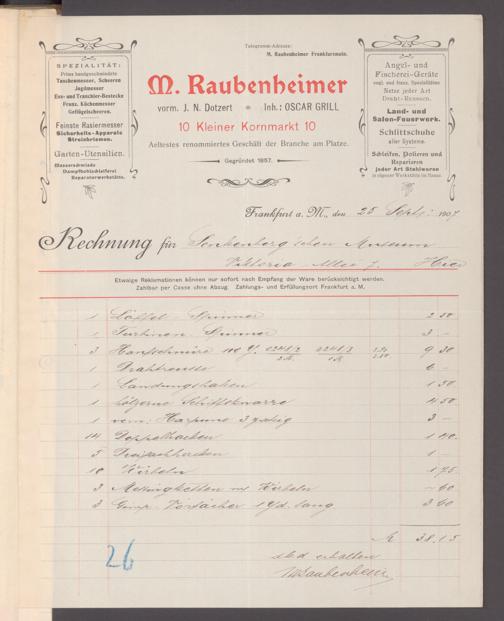 Telegramm-Adresse:
M. Raubenheimer Frankfurtmain.
SPEZIALITÄT:
Prima handgeschmiedete
Taschenmesser, Scheeren
Jagdmesser
Ess- und Tranchier-Bestecke
Franz. Küchenmesser
Geflügelscheeren.
Feinste Rasiermesser
Sicherheits-Apparate
Streichriemen.
Garten-Utensilien.
Messerschmiede
Dampfhohlschleiferei
Reparaturwerkstätte.
M. Raubenheimer
vorm. J. N. Dotzert Inh.: OSCAR GRILL
10 Kleiner Kornmarkt 10
Aeltestes renommiertes Geschäft der Branche am Platze.
Gegründet 1857.
Angel- und
Fischerei-Geräte
engl. und franz. Spezialitäten
Netze jeder Art
Draht-Reusen.
Land- und
Salon-Feuerwerk.
Schlittschuhe
aller Systeme.
Schleifen, Polieren und
Reparieren
jeder Art Stahlware
in eigener Werkstätte im Hause.
Frankfurt a. M., den 25 Sept: 1907
Rechnung für Senckenberg'schen Museum
Viktoria Allee 7. Hier
Etwaige Reklamationen können nur sofort nach Empfang der Ware berücksichtigt werden.
Zahlbar per Casse ohne Abzug. Zahlungs- und Erfüllungsort Frankfurt a. M.
1 Löffel Spinner 2 50
1 Turbinen Spinner 3 -
3 Hanfschnüre 9 30
1 6 -
1 Landungshaken 1 50
1 hölzerne 4 50
1 Harpune 3 3 -
14 Doppelhacken 1 40
5 1 -
10 Wirbeln 1 75
3 Messingketten mit Wirbeln - 60
3 Vorfächer 1 Yd. lang 3 60
M 38.15
erhalten
MRaubenheimer
26